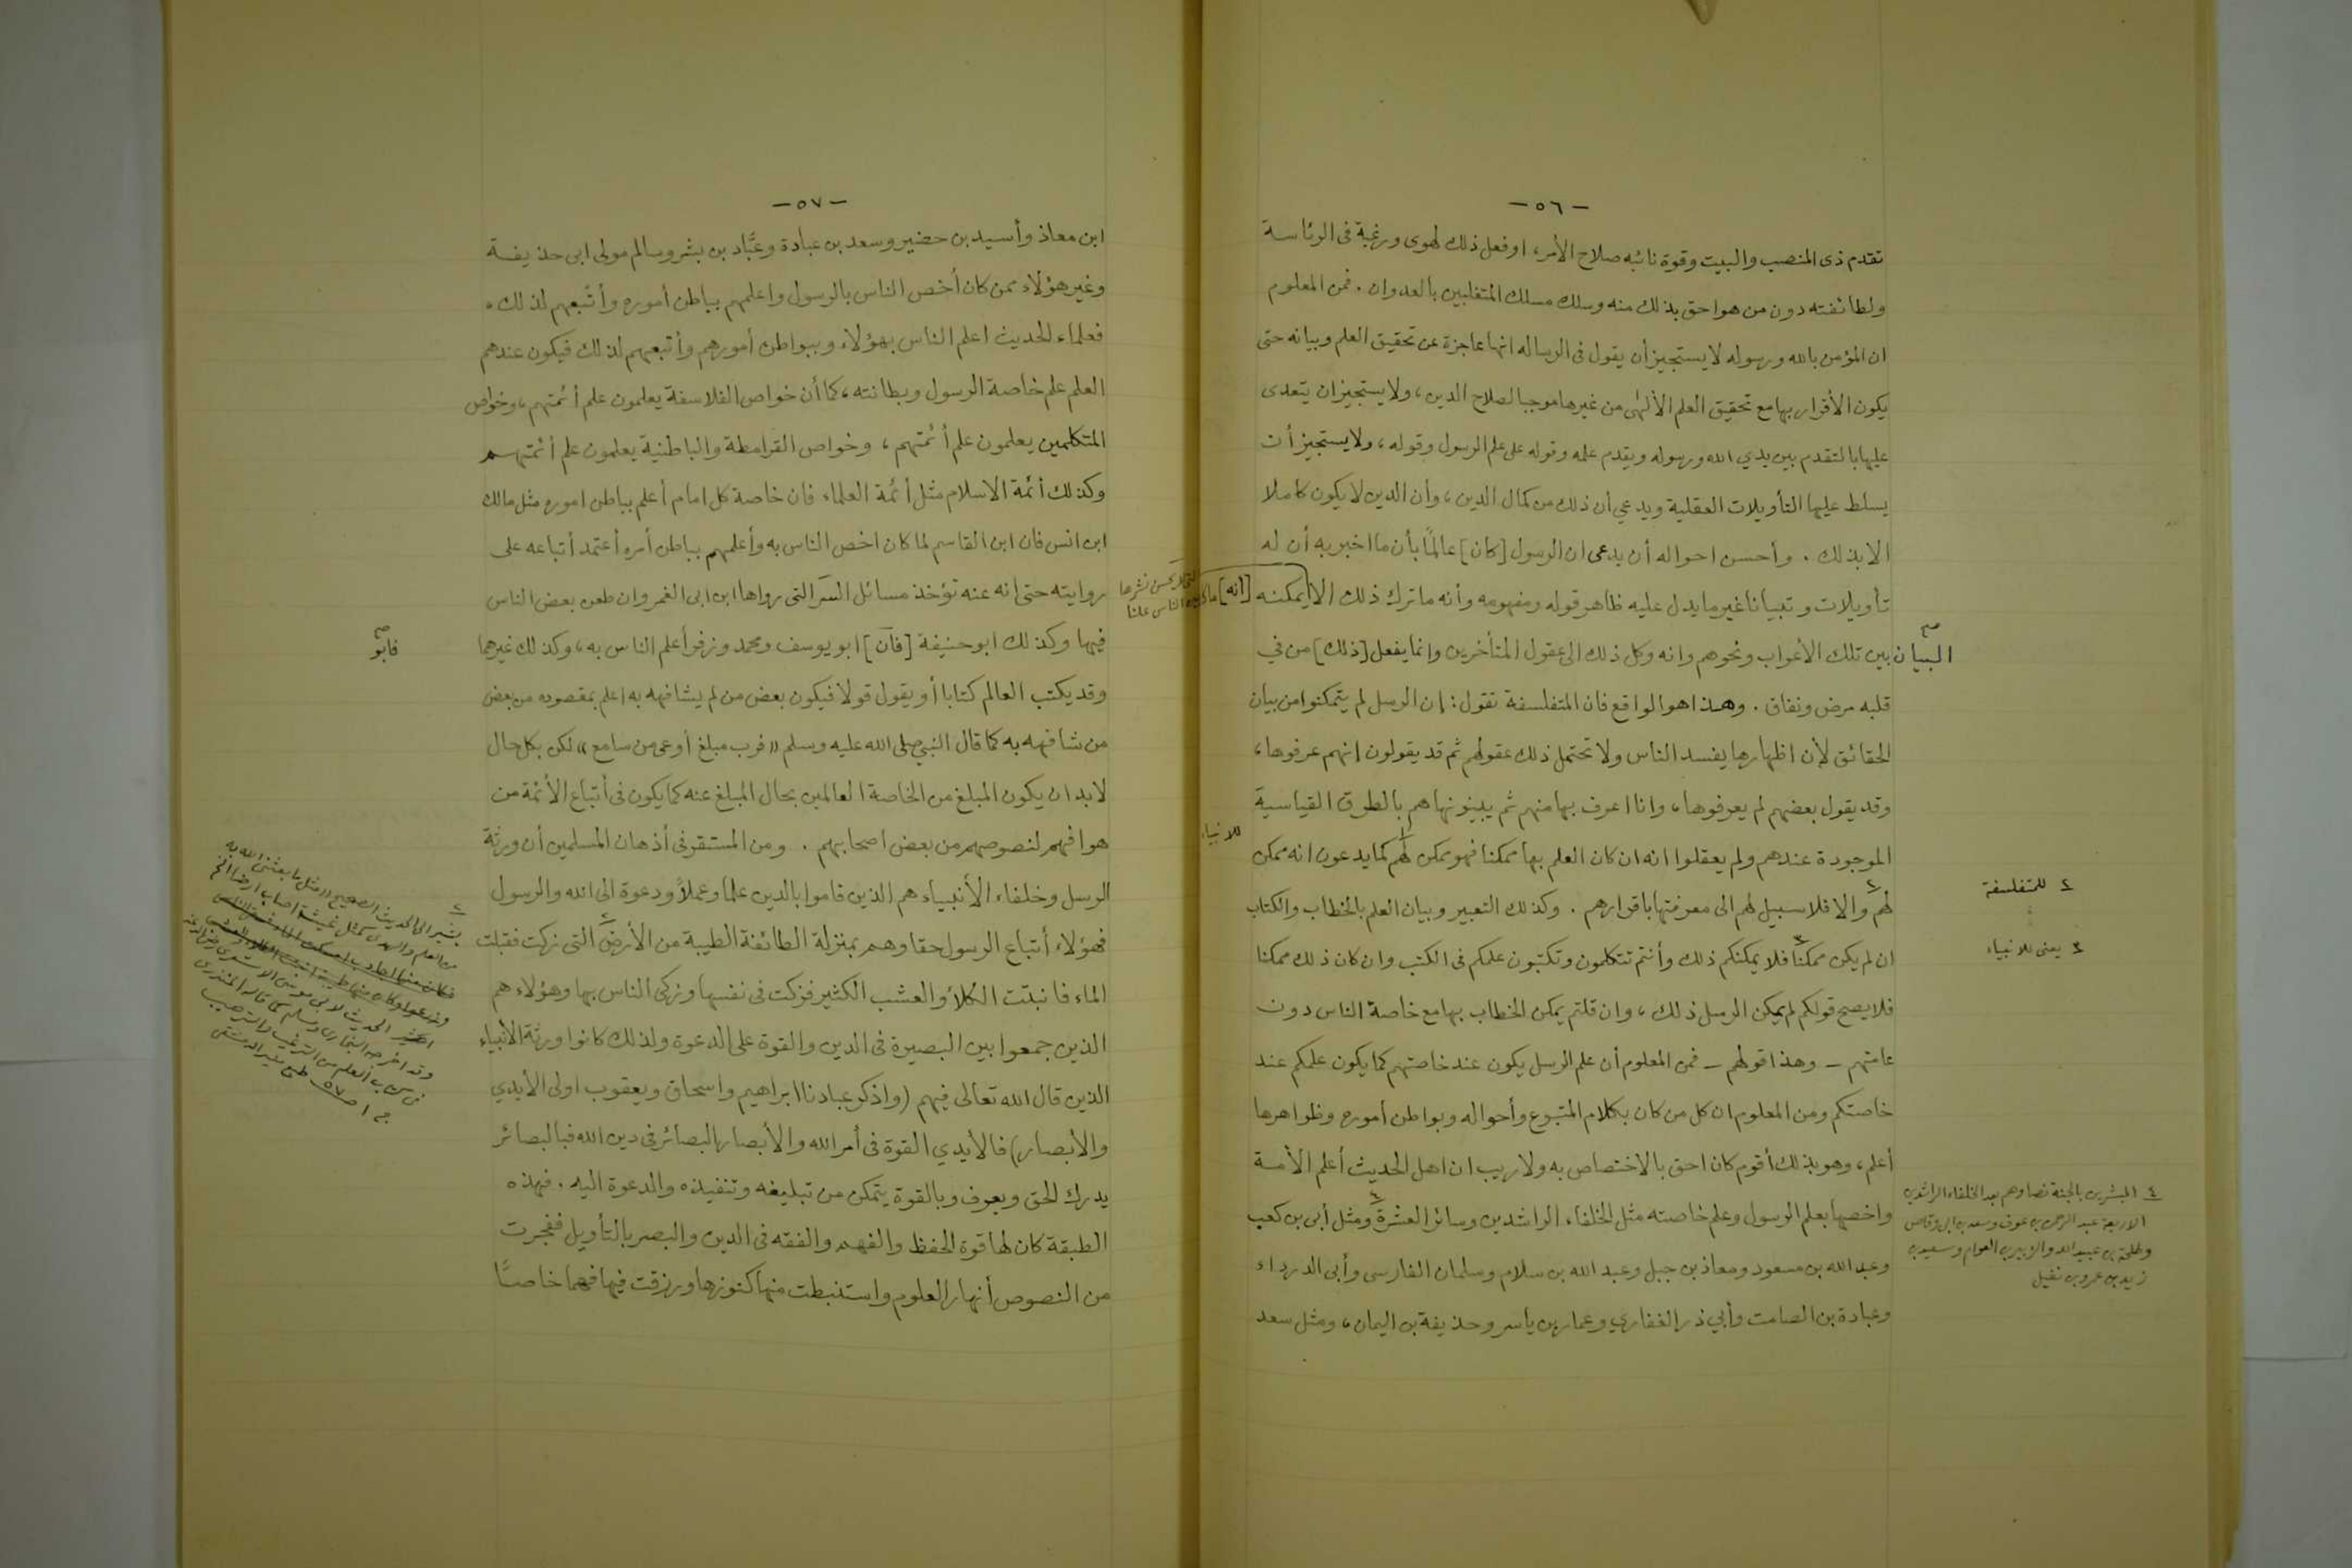 -٥٦-
تقدم ذى المنصب والبيت وقوة نائبه صلاح الأمر، او فعل ذلك لهوى ورغبة فى الرئاسة
ولطائفته دون من هو احق بذلك منه وسلك مسلك المتغلبين بالعدوان. فمن المعلوم
ان المؤمن بالله ورسوله لا يستجيز أن يقول فى الرساله انها عاجزة عن تحقيق العلم وبيانه حتى
يكون الأقرار بها مع تحقيق العلم الألهى من غيرها موجبا لصلاح الدين، ولا يستجيز ان يتعدى
عليها بالتقدم بين يدي الله ورسوله ويقدم علمه وقوله على علم الرسول وقوله، ولا يستجيز أن
يسلط عليها التأويلات العقلية ويدعي أن ذلك من كمال الدين، وأن الدين لا يكون كاملا
الا بذلك. وأحسن احواله أن يدعى ان الرسول [كان] عالمًا بأن ما اخبر به أن له
تأويلات وتبيانا غير ما يدل عليه ظاهر قوله ومفهومه وأنه ما ترك ذلك الا [انه] ما كان يمكنه
التى لا يحسن نشرها
بين الناس علنا
البيان بين تلك الأعراب ونحوهم وانه وكل ذلك الى عقول المتأخرين وانما يفعل [ذلك] من في
صح
قلبه مرض ونفاق. وهذا هو الواقع فان المتفلسفة تقول: إن الرسل لم يتمكنوا من بيان
الحقائق لأن اظهارها يفسد الناس ولا تحتمل ذلك عقولهم ثم قد يقولون انهم عرفوها،
وقد يقول بعضهم لم يعرفوها، وانا اعرف بها منهم ثم يبينونها هم بالطرق القياسية
الموجودة عندهم ولم يعقلوا انه ان كان العلم بها ممكنا فهو ممكن لهم ١ كما يدعون انه ممكن
للانبياء
لهم ٢ والا فلا سبيل لهم الى معرفتها باقرارهم. وكذلك التعبير وبيان العلم بالخطاب والكتاب
٢ للمتفلسفة
ان لم يكن ممكنا ٣ فلا يمكنكم ذلك وأنتم تتكلمون وتكتبون علمكم فى الكتب وان كان ذلك ممكنا
٣ يعنى للانبياء
فلا يصح قولكم لم يمكن الرسل ذلك، وان قلتم يمكن الخطاب بها مع خاصة الناس دون
عامتهم - وهذا قولهم - فمن المعلوم أن علم الرسل يكون عند خاصتهم كما يكون علمكم عند
خاصتكم ومن المعلوم ان كل من كان بكلام المتبوع وأحواله وبواطن أموره وظواهرها
أعلم، وهو بذلك أقوم كان احق بالاختصاص به ولا ريب ان اهل الحديث أعلم الأمة
واخصها بعلم الرسول وعلم خاصته مثل الخلفاء الراشدين وسائر العشرة ٤ ومثل أبى بن كعب
وعبد الله بن مسعود ومعاذ بن جبل وعبد الله بن سلام وسلمان الفارسى وأبى الدرداء
وعبادة بن الصامت وأبي ذر الغفاري وعمار بن ياسر وحذيفة بن اليمان، ومثل سعد
٤ المبشرين بالجنة نصا وهم بعد الخلفاء الراشدين
الاربعة عبد الرحمن بن عوف وسعد بن أبى وقاص
وطلحة بن عبيد الله والزبير بن العوام وسعيد بن
زيد بن عمرو بن نفيل
-٥٧-
ابن معاذ وأسيد بن حضير وسعد بن عبادة وعبَّاد بن بشر وسالم مولى ابى حذيفة
وغير هؤلاء ممن كان أخص الناس بالرسول واعلمهم بباطن أموره وأتبعهم لذلك.
فعلماء الحديث اعلم الناس بهؤلاء وببواطن أمورهم وأتبعهم لذلك فيكون عندهم
العلم علم خاصة الرسول وبطانته، كما أن خواص الفلاسفة يعلمون علم أئمتهم، وخواص
المتكلمين يعلمون علم أئمتهم، وخواص القرامطة والباطنية يعلمون علم أئمتهم
وكذلك أئمة الاسلام مثل أئمة العلماء فان خاصة كل امام أعلم بباطن اموره مثل مالك
ابن انس فان ابن القاسم لما كان اخص الناس به وأعلمهم بباطن أمره أعتمد أتباعه على
روايته حتى انه عنه تؤخذ مسائل السر التى رواها ابن ابى الغمر وان طعن بعض الناس
فيها وكذلك ابو حنيفة [فأن] ابو يوسف ومحمد وزفر أعلم الناس به، وكذلك غيرهما
صح
فابو
وقد يكتب العالم كتابا أو يقول قولا فيكون بعض من لم يشافهه به اعلم بمقصوده من بعض
من شافهه به كما قال النبي صلى الله عليه وسلم «فرب مبلغ أوعى من سامع» لكن بكل حال
لابد ان يكون المبلغ من الخاصة العالمين بحال المبلغ عنه كما يكون فى أتباع الأئمة من
هو افهم لنصوصهم من بعض اصحابهم. ومن المستقر فى أذهان المسلمين أن ورثة
الرسل وخلفاء الأنبياء هم الذين قاموا بالدين علما وعملاً ودعوة الى الله والرسول
فهؤلاء أتباع الرسول حقا وهم بمنزلة الطائفة الطيبة من الأرض ٢ التى زكت فقبلت
الماء فانبتت الكلأ والعشب الكثير فزكت فى نفسها وزكى الناس بها وهؤلاء هم
الذين جمعوا بين البصيرة فى الدين والقوة على الدعوة ولذلك كانوا ورثة الانبياء
الذين قال الله تعالى فيهم (واذكر عبادنا ابراهيم واسحاق ويعقوب اولى الأيدي
والأبصار) فالأيدي القوة فى أمر الله والأبصار البصائر فى دين الله فبالبصائر
يدرك الحق ويعرف وبالقوة يتمكن من تبليغه وتنفيذه والدعوة اليه. فهذه
الطبقة كان لها قوة الحفظ والفهم والفقه فى الدين والبصر بالتأويل ففجرت
من النصوص أنهار العلوم واستنبطت منها كنوزها ورزقت فيها فهما خاصًا
٢
يشير الى الحديث الصحيح ان مثل ما بعثنى الله به
من العلم والهدى كمثل غيث اصاب ارضا الخ
الحديث لابى موسى الاشعرى رضى الله عنه
وقد اخرجه البخارى ومسلم كما قاله المنذرى
فى كتاب العلم من الترغيب والترهيب
ج ١ ص ٥٧ طبع منير الدمشقى